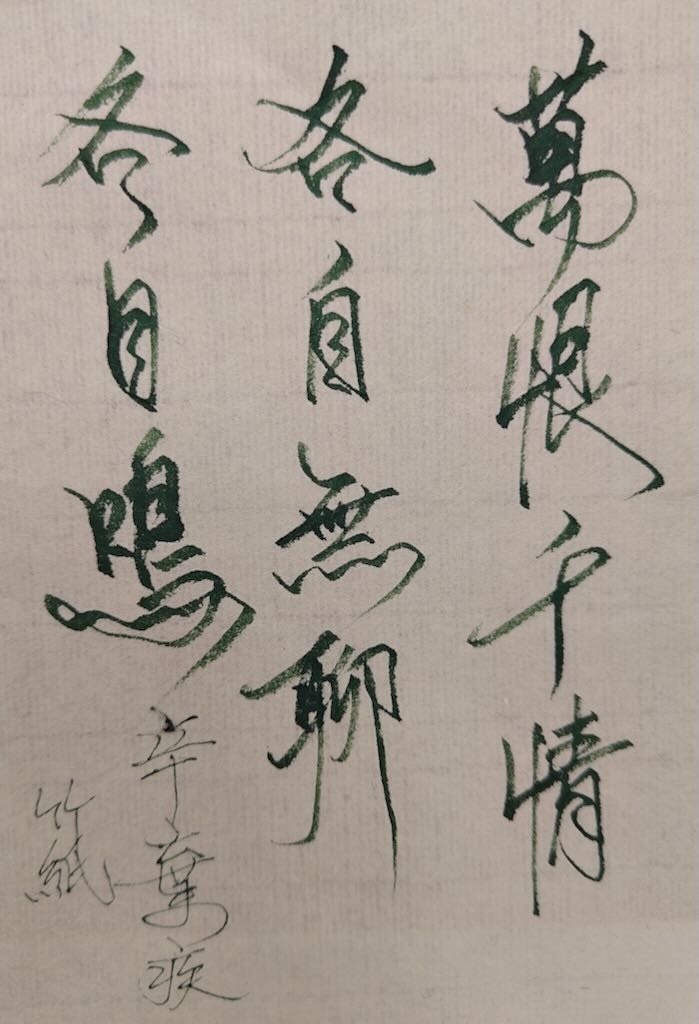 萬恨千情
各自無聊
各自鳴
辛棄疾
竹紙